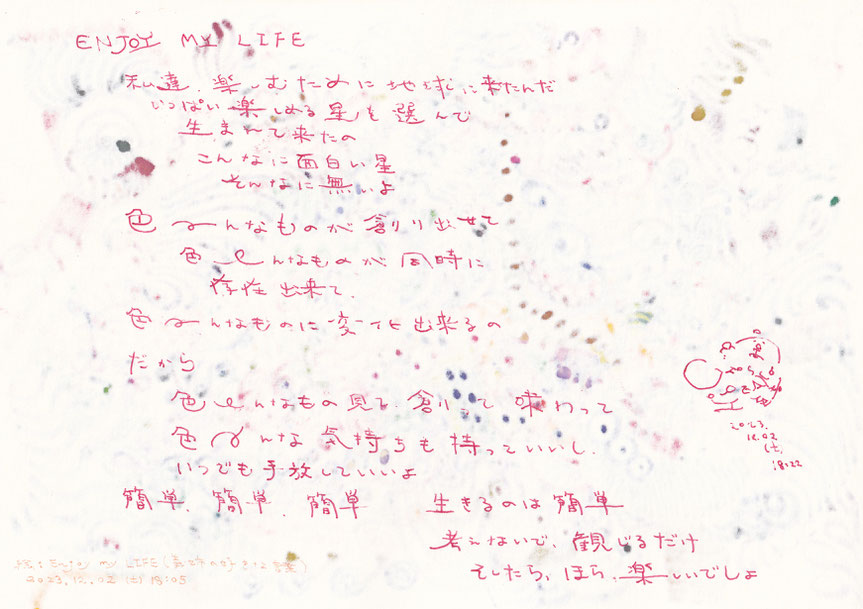 ENJOY MY LIFE
私達、楽しむために地球に来たんだ
いっぱい楽しめる星を選んで
生まれて来たの
こんなに面白い星
そんなに無いよ
色んなものが創り出せて
色んなものが同時に
存在出来て、
色んなものに変化出来るの
だから
色んなもの見て、創って味わって
色んな気持ちも持っていいし、
いつでも手放していいよ
簡単、簡単、簡単
生きるのは簡単
考えないで、観じるだけ
そしたら、ほら、楽しいでしょ
2023.
12.02
(土)
18:22
Enjoy my LIFE
2023.12.02 (土) 18:05